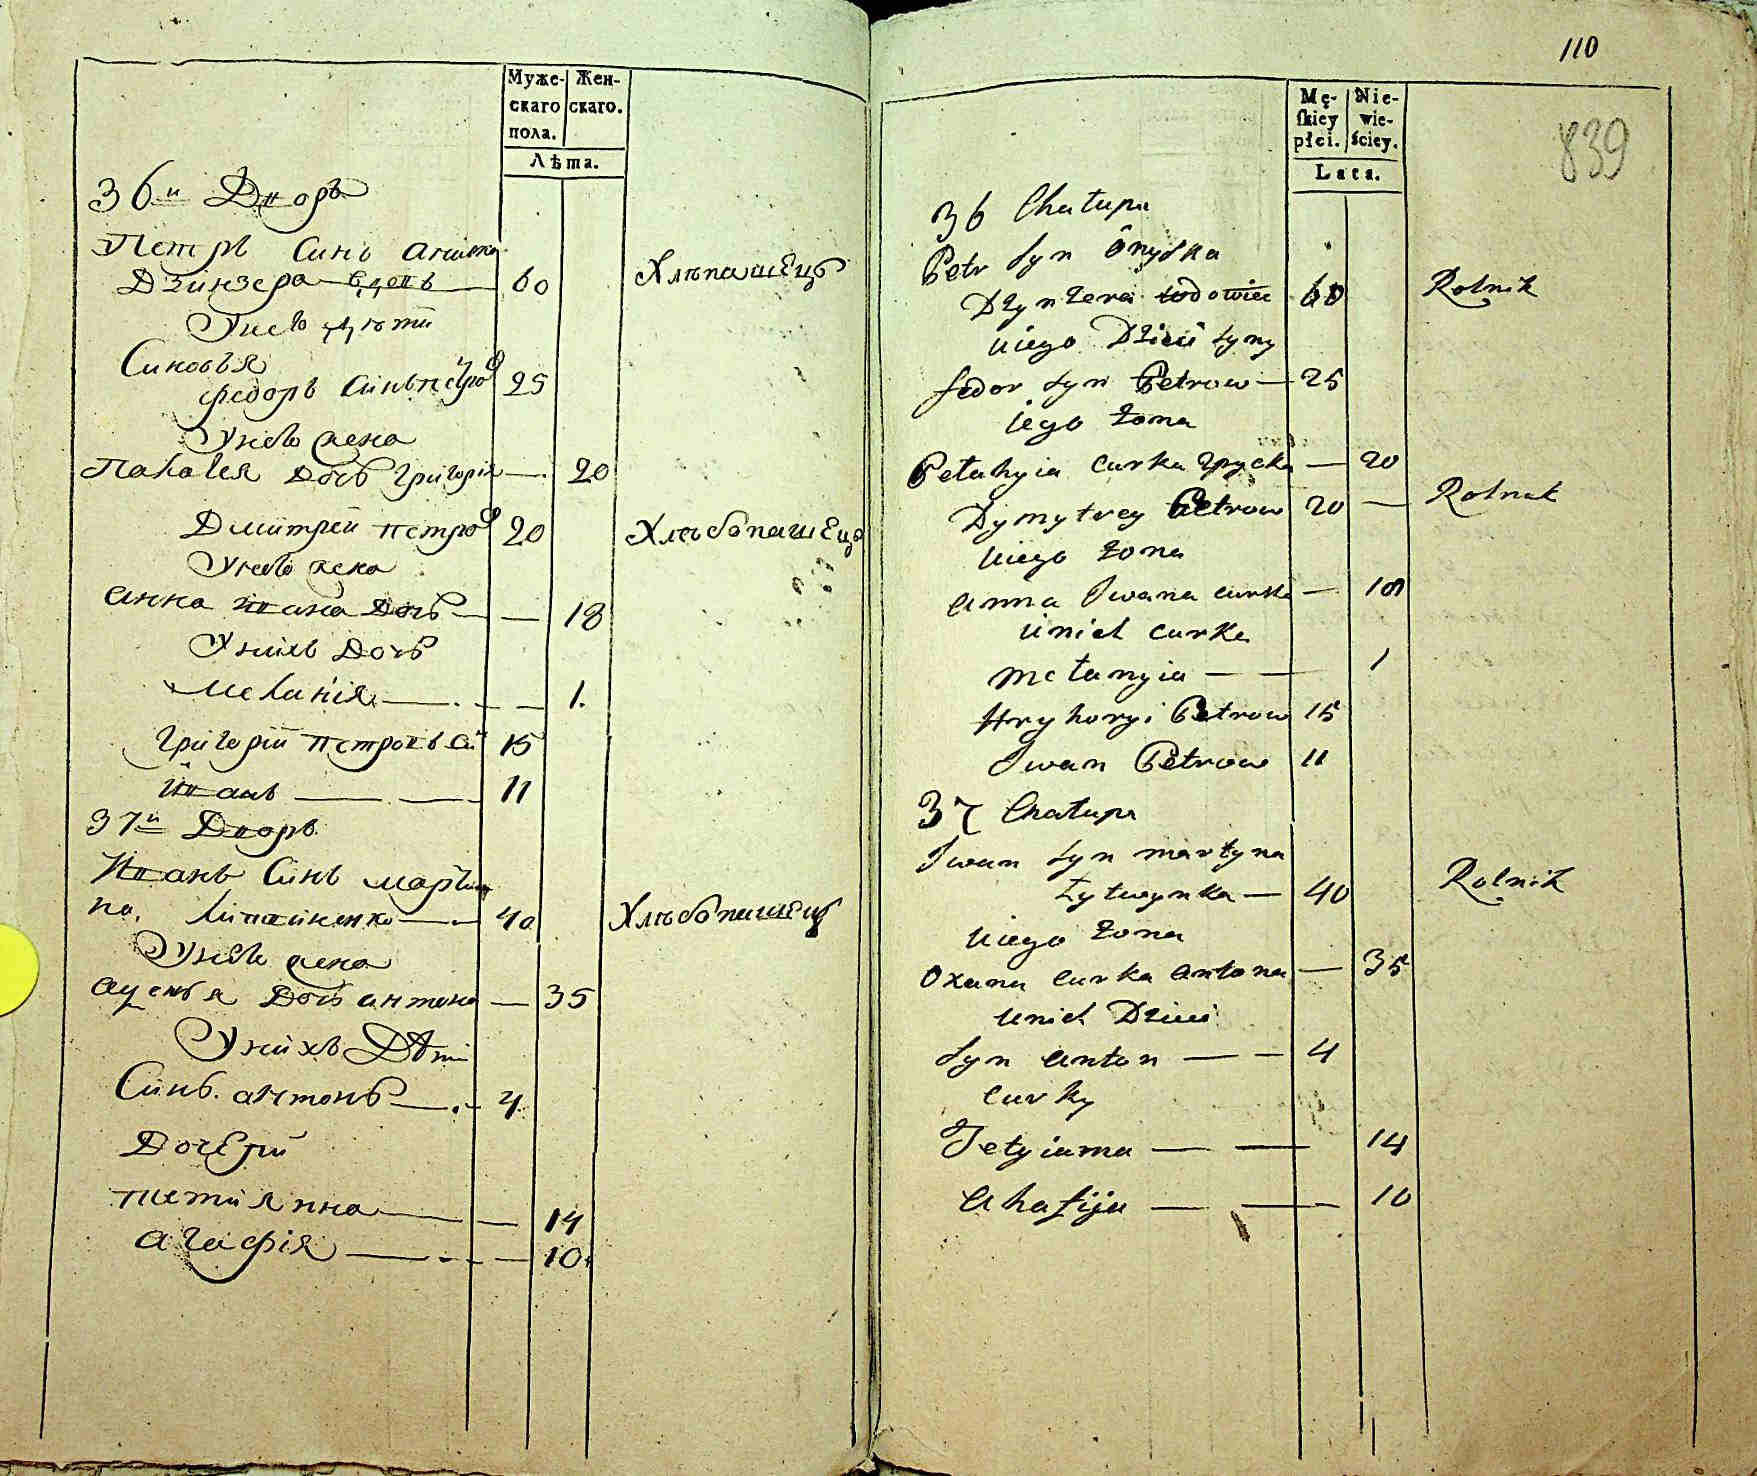 Муже- Жен-
скаго скаго.
пола.
Лѣта.
36й Дворъ
Петръ Синъ
Дзинзера вдовъ 60 Хлѣпашецъ
Унево дѣти
Синовья
Федоръ Синъ Петров 25
Унево жена
Палагея Дочь Григорія — 20
Дмитрей Петров 20 Хлѣбопашецъ
Унево жена
Анна Ивана Дочь — — 18
Унихъ Дочь
Меланія — — — 1.
Григорій Петровъ Си 15
Иванъ — — — 11
37й Дворъ
Иванъ Синъ Марти
на. — 40 Хлѣбопашецъ
Унево жена
Дочь Антона — 35
Унихъ Дѣти
Синъ. Антонъ — 4.
Дочери
— — 14
Агафія — — — 10.
110
839
Mę- Nie-
skiey wie-
płci. ściey.
Lata.
36 Chałupa
Petr Syn Onyska
Dzynzera wdowiec 60 Rolnik
Uiego Dzieci Syny
Fedor Syn Petrow — 25
iego Zona
Pełahyia Curka — 20
Dymytrey Petrow 20 — Rolnik
Uiego Zona
Anna Iwana Curka — 18
Unich Curka
Mełanyia — — 1
Hryhoryi Petrow 15
Iwan Petrow 11
37 Chałupa
Iwan Syn Martyna
Łytwynka — 40 Rolnik
Uiego Zona
Oxana Curka Antona — 35
Unich Dzieci
Syn Anton — — 4
Curky
Tetyianna — — 14
Ahafija — — 10